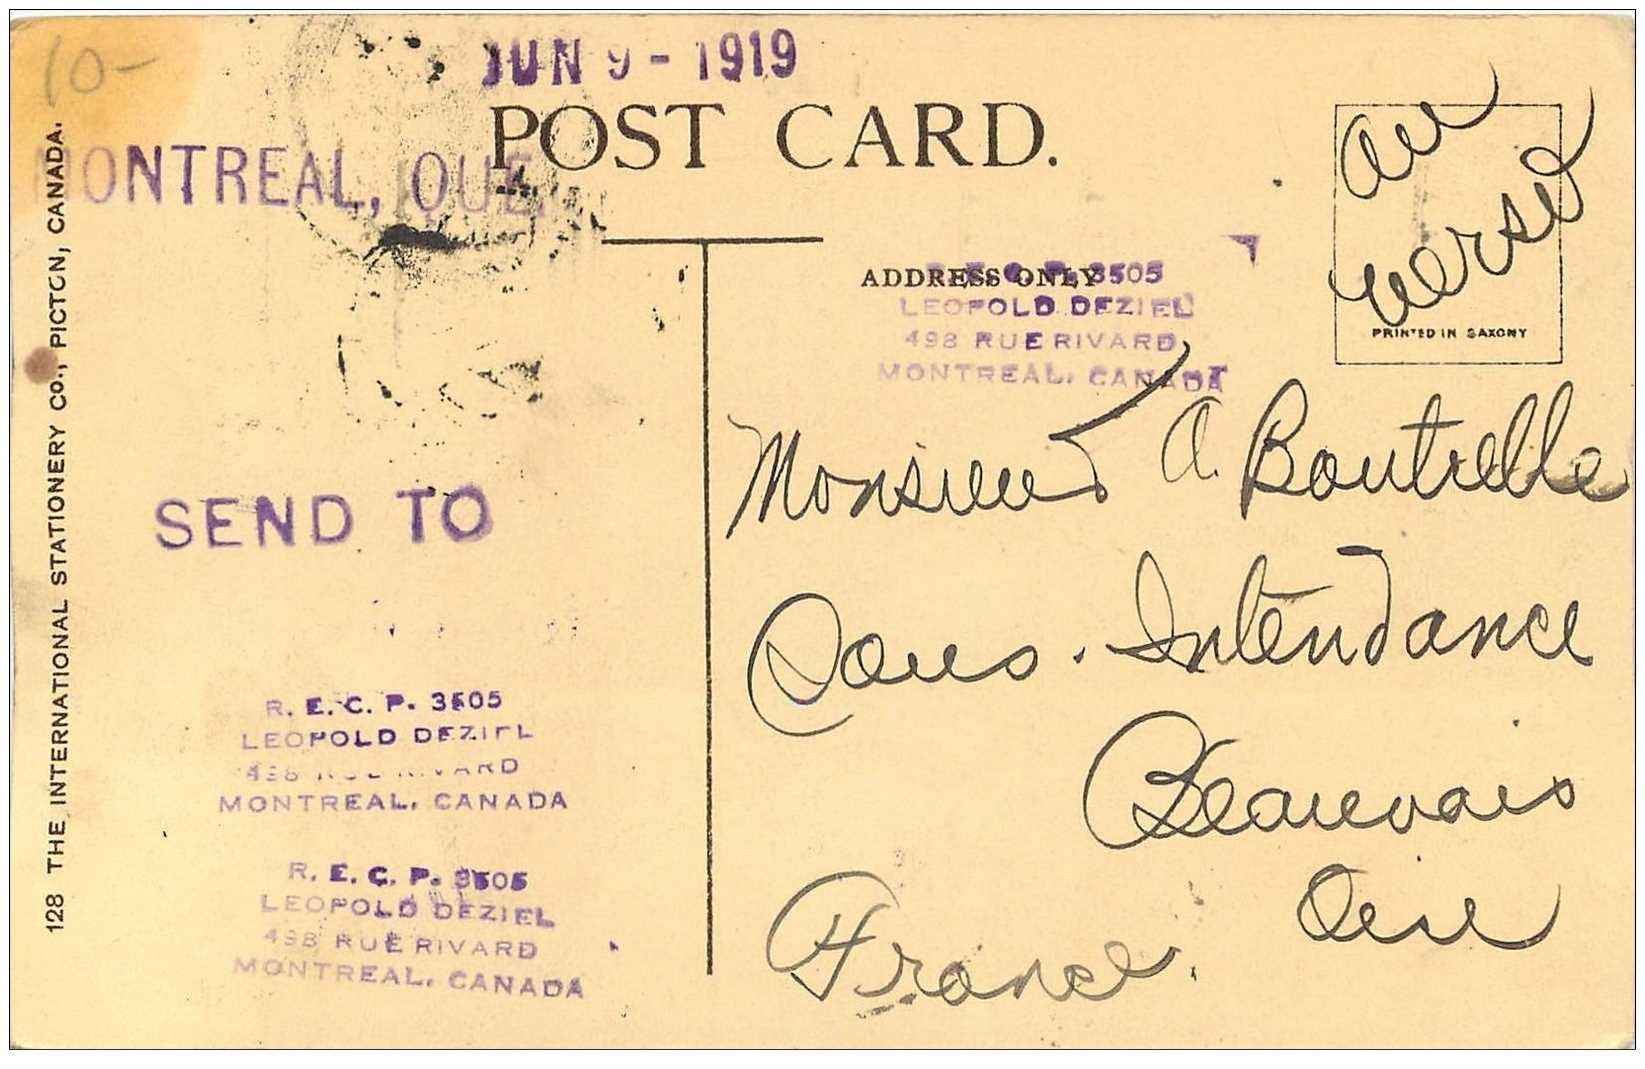 10-
JUN 9 - 1919
POST CARD.
MONTREAL, QUE.
au
verso
PRINTED IN SAXONY
ADDRESS ONLY
3505
LEOPOLD DEZIEL
498 RUE RIVARD
MONTREAL, CANADA
Monsieur A. Boutrelle
Sous. Intendance
Beauvais
Oise
France.
SEND TO
R. E. C. P. 3505
LEOPOLD DEZIEL
498 RUE RIVARD
MONTREAL, CANADA
R. E. C. P. 3505
LEOPOLD DEZIEL
498 RUE RIVARD
MONTREAL, CANADA
128 THE INTERNATIONAL STATIONERY CO., PICTON, CANADA.